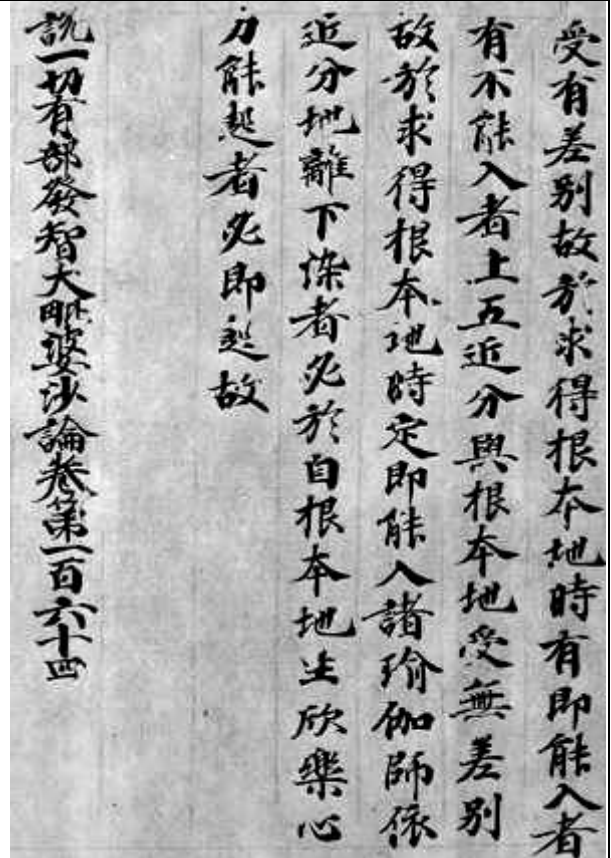 受有差別故於求得根本地時有即能入者
有不能入者上五近分與根本地受無差別
故於求得根本地時定即能入諸瑜伽師依
近分地離下染者必於自根本地生欣樂心
力能起者必即起故
說一切有部發智大毗婆沙論卷第一百六十四